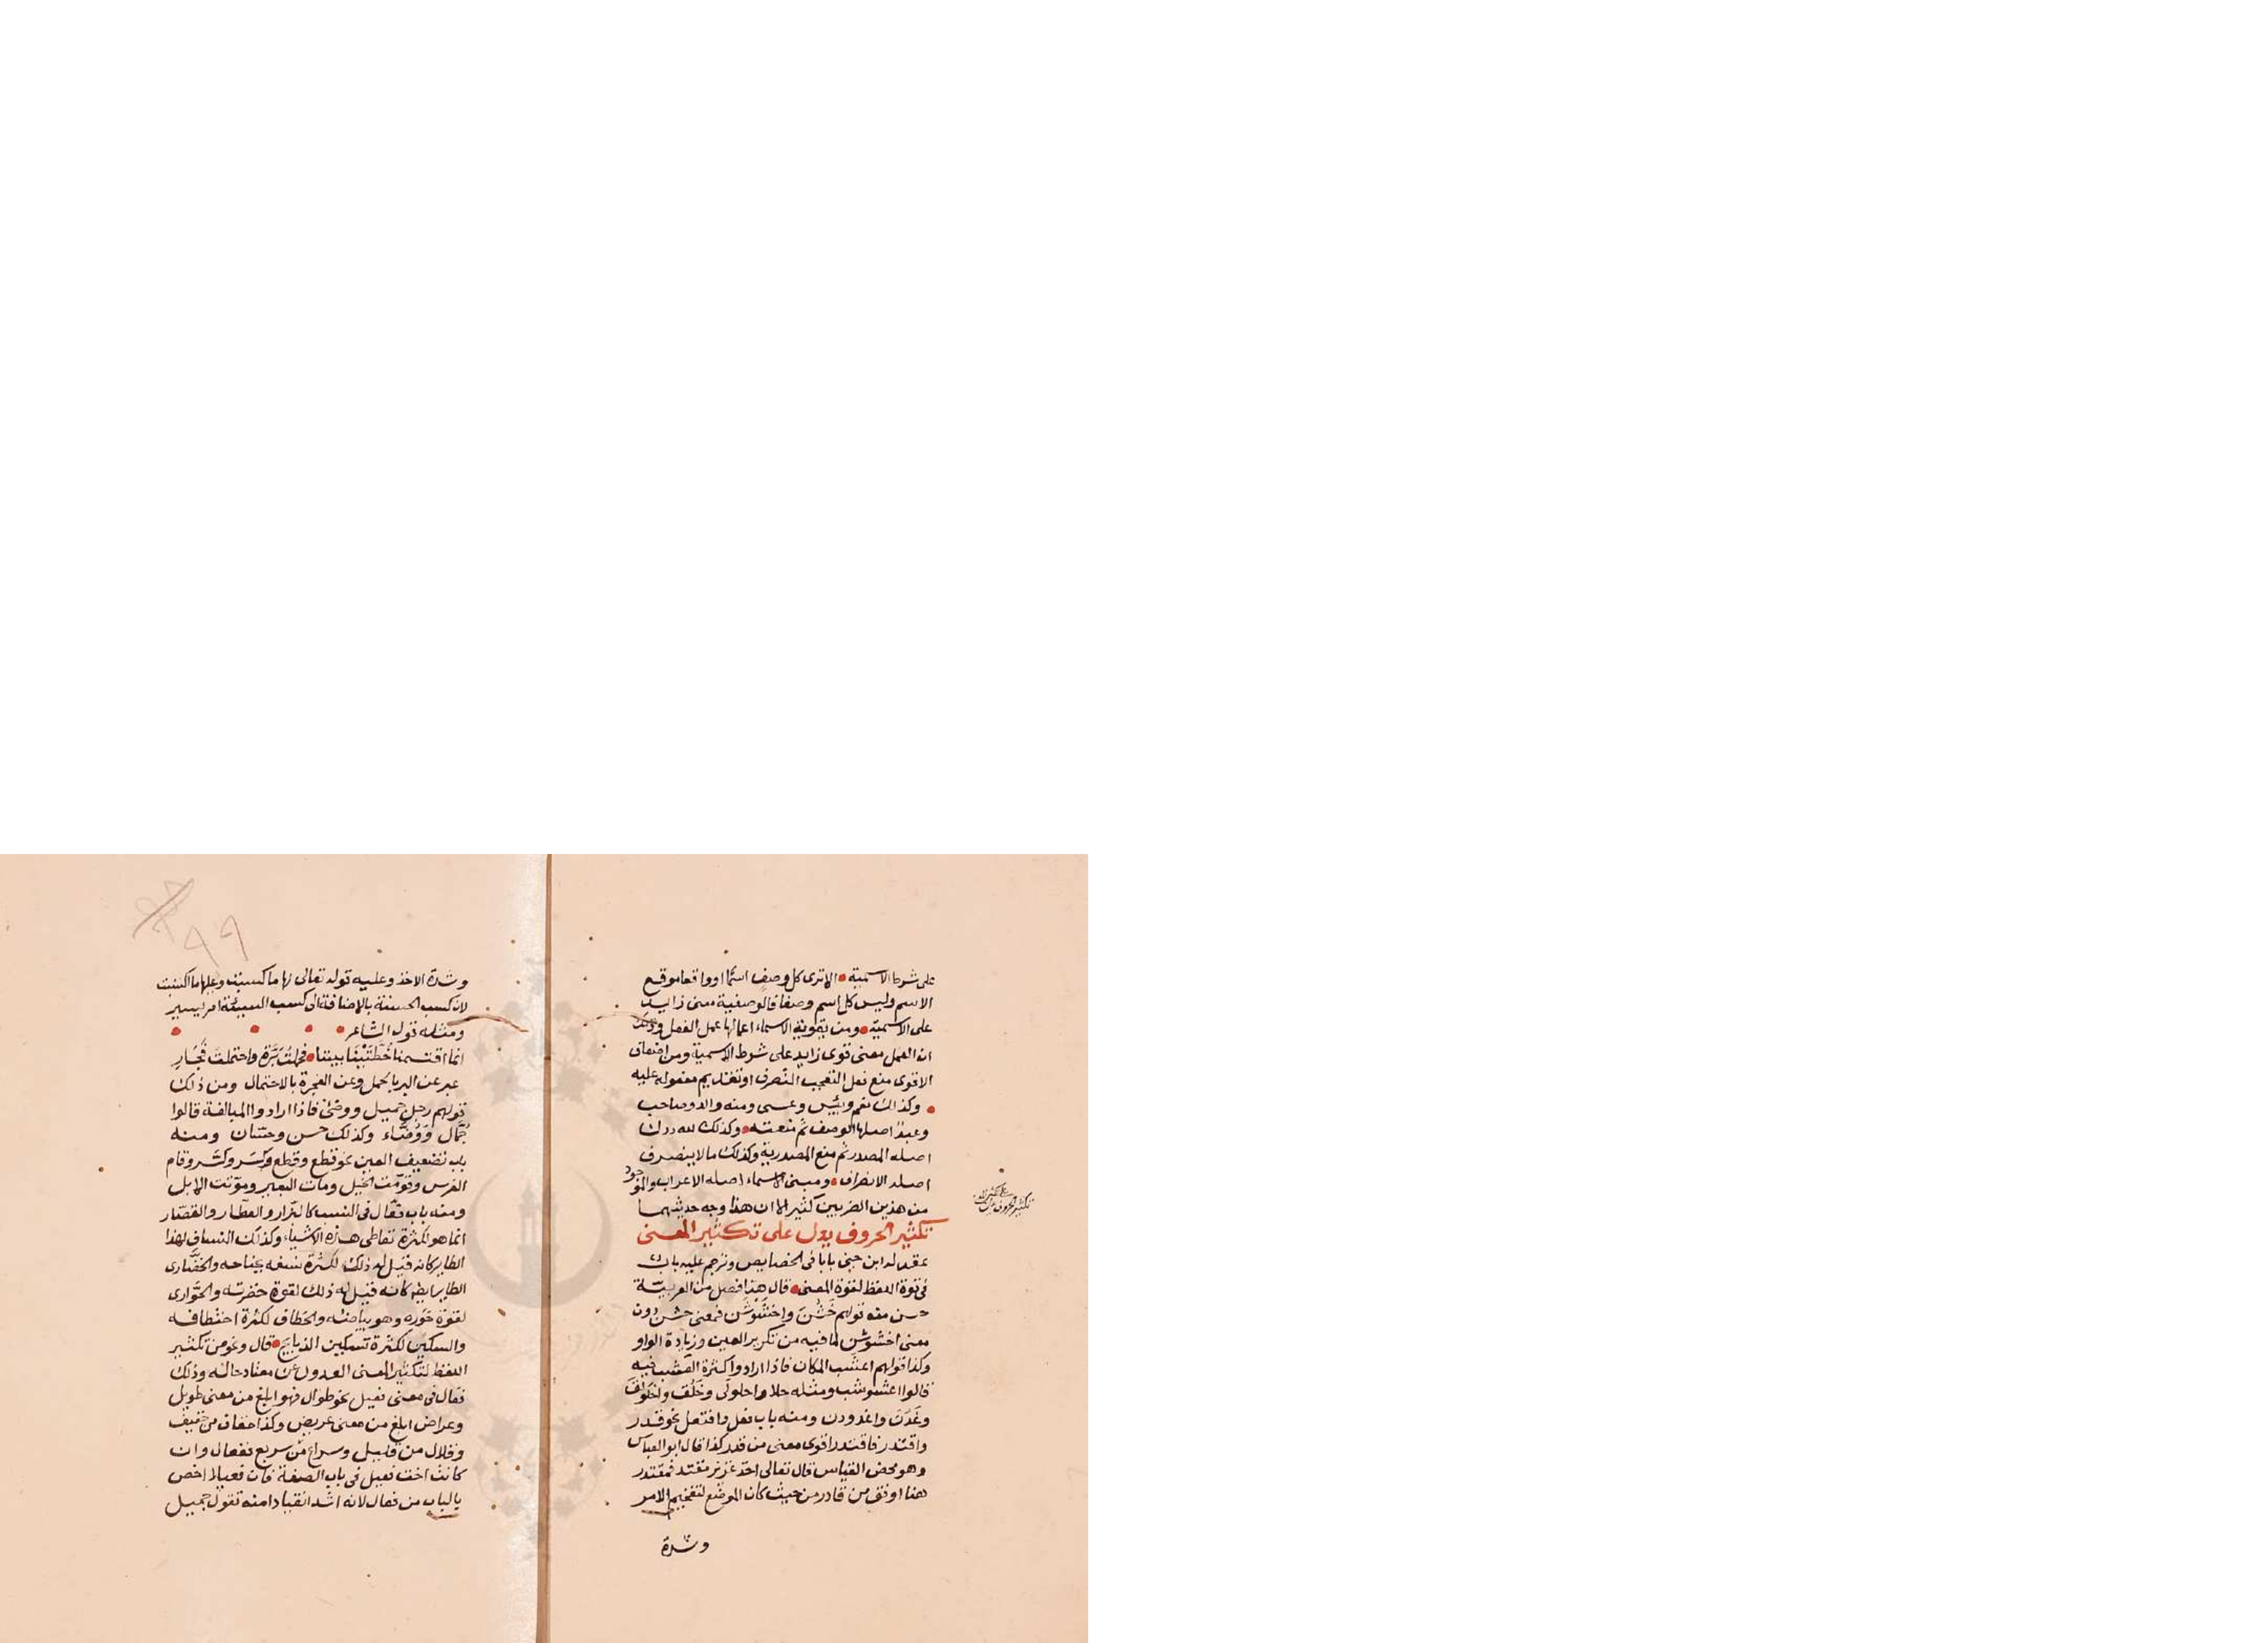 على شرط الاسمية الا ترى كل وصف اسما او واقعا موقع
الاسم وليس كل اسم وصفا فالوصفية معنى زايد
على الاسمية ومن تقوية الاسماء اعمالها عمل الفعل وذلك
ان العمل معنى قوى زايد على شرط الاسمية ومن اضعاف
الاقوى منع فعل التعجب التصرف او تقديم مفعوله عليه
وكذلك نعم وبئس وعسى ومنه والد وصاحب
وعبد اصلها الوصف ثم منعته وكذلك لله درك
اصله المصدر ثم منع المصدرية وكذلك ما لا ينصرف
اصله الانصراف ومبنى الاسماء اصله الاعراب والموجود
من هذين الضربين كثير الا ان هذا وجه حديثهما
تكثير الحروف يدل على تكثير المعنى
تكثير الحروف يدل على تكثير المعنى
عقد له ابن جنى بابا فى الخصايص وترجم عليه باب
فى قوة اللفظ لقوة المعنى قال هذا فصل من العربية
حسن منه قولهم خَشُنَ واخشوشن فمعنى خشن دون
معنى اخشوشن لما فيه من تكرير العين وزيادة الواو
وكذا قولهم اعشب المكان فاذا ارادوا كثرة العشب فيه
قالوا اعشوشب ومثله حلا واحلولى وخَلُق واخلولق
وغَدَن واغدودن ومنه باب فعل وافتعل نحو قدر
واقتدر فاقتدر اقوى معنى من قدر كذا قال ابو العباس
وهو محض القياس قال تعالى اخذ عزيز مقتدر فمقتدر
هنا اوفق من قادر من حيث كان الموضع لتفخيم الامر
وشدة
٩٩
وشدة الاخذ وعليه قوله تعالى لها ما كسبت وعليها ما اكتسبت
لان كسب الحسنة بالاضافة الى كسب السيئة امر يسير
ومثله قول الشاعر
انا اقتسمنا خُطَّتَيْنَا بيننا فحملتُ بَرَّةَ واحتملتَ فَجَارِ
عبر عن البر بالحمل وعن الفجرة بالاحتمال ومن ذلك
قولهم رجل جميل ووضئ فاذا ارادوا المبالغة قالوا
جُمَّال ووُضَّاء وكذلك حسن وحسّان ومنه
باب تضعيف العين نحو قطع وقطّع وكسَر وكسّر وقام
الفرس وقوّمت الخيل ومات البعير وموّتت الابل
ومنه باب فعّال فى النسب كالبزّار والعطّار والقصّار
انما هو لكثرة تعاطى هذه الاشياء وكذلك النساف لهذا
الطاير كانه قيل له ذلك لكثرة نسفه بجناحه والخضّارى
الطاير ايضا كانه قيل له ذلك لقوة خضرته والحوّارى
لقوة حَوَره وهو بياضه والخطّاف لكثرة اختطافه
والسكين لكثرة تسكين الذبايح قال ونحو من تكثير
اللفظ لتكثير المعنى العدول عن معتاد حاله وذلك
فعال فى معنى فعيل نحو طوال فهو ابلغ من معنى طويل
وعراض ابلغ من معنى عريض وكذا خفاف من خفيف
وقلال من قليل وسراع من سريع ففعال وان
كانت اخت فعيل فى باب الصفة فان فعيلا اخص
بالباب من فعال لانه اشد انقيادا منه تقول جميل